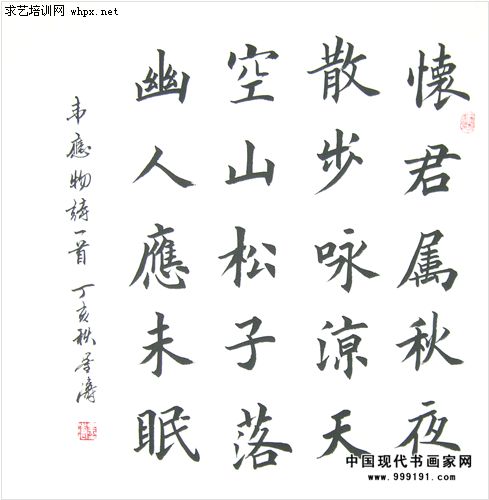 求艺培训网 whpx.net
懐君属秋夜
散步咏涼天
空山松子落
幽人應未眠
韦應物詩一首 丁亥秋
中国现代书画家网
www.999191.com